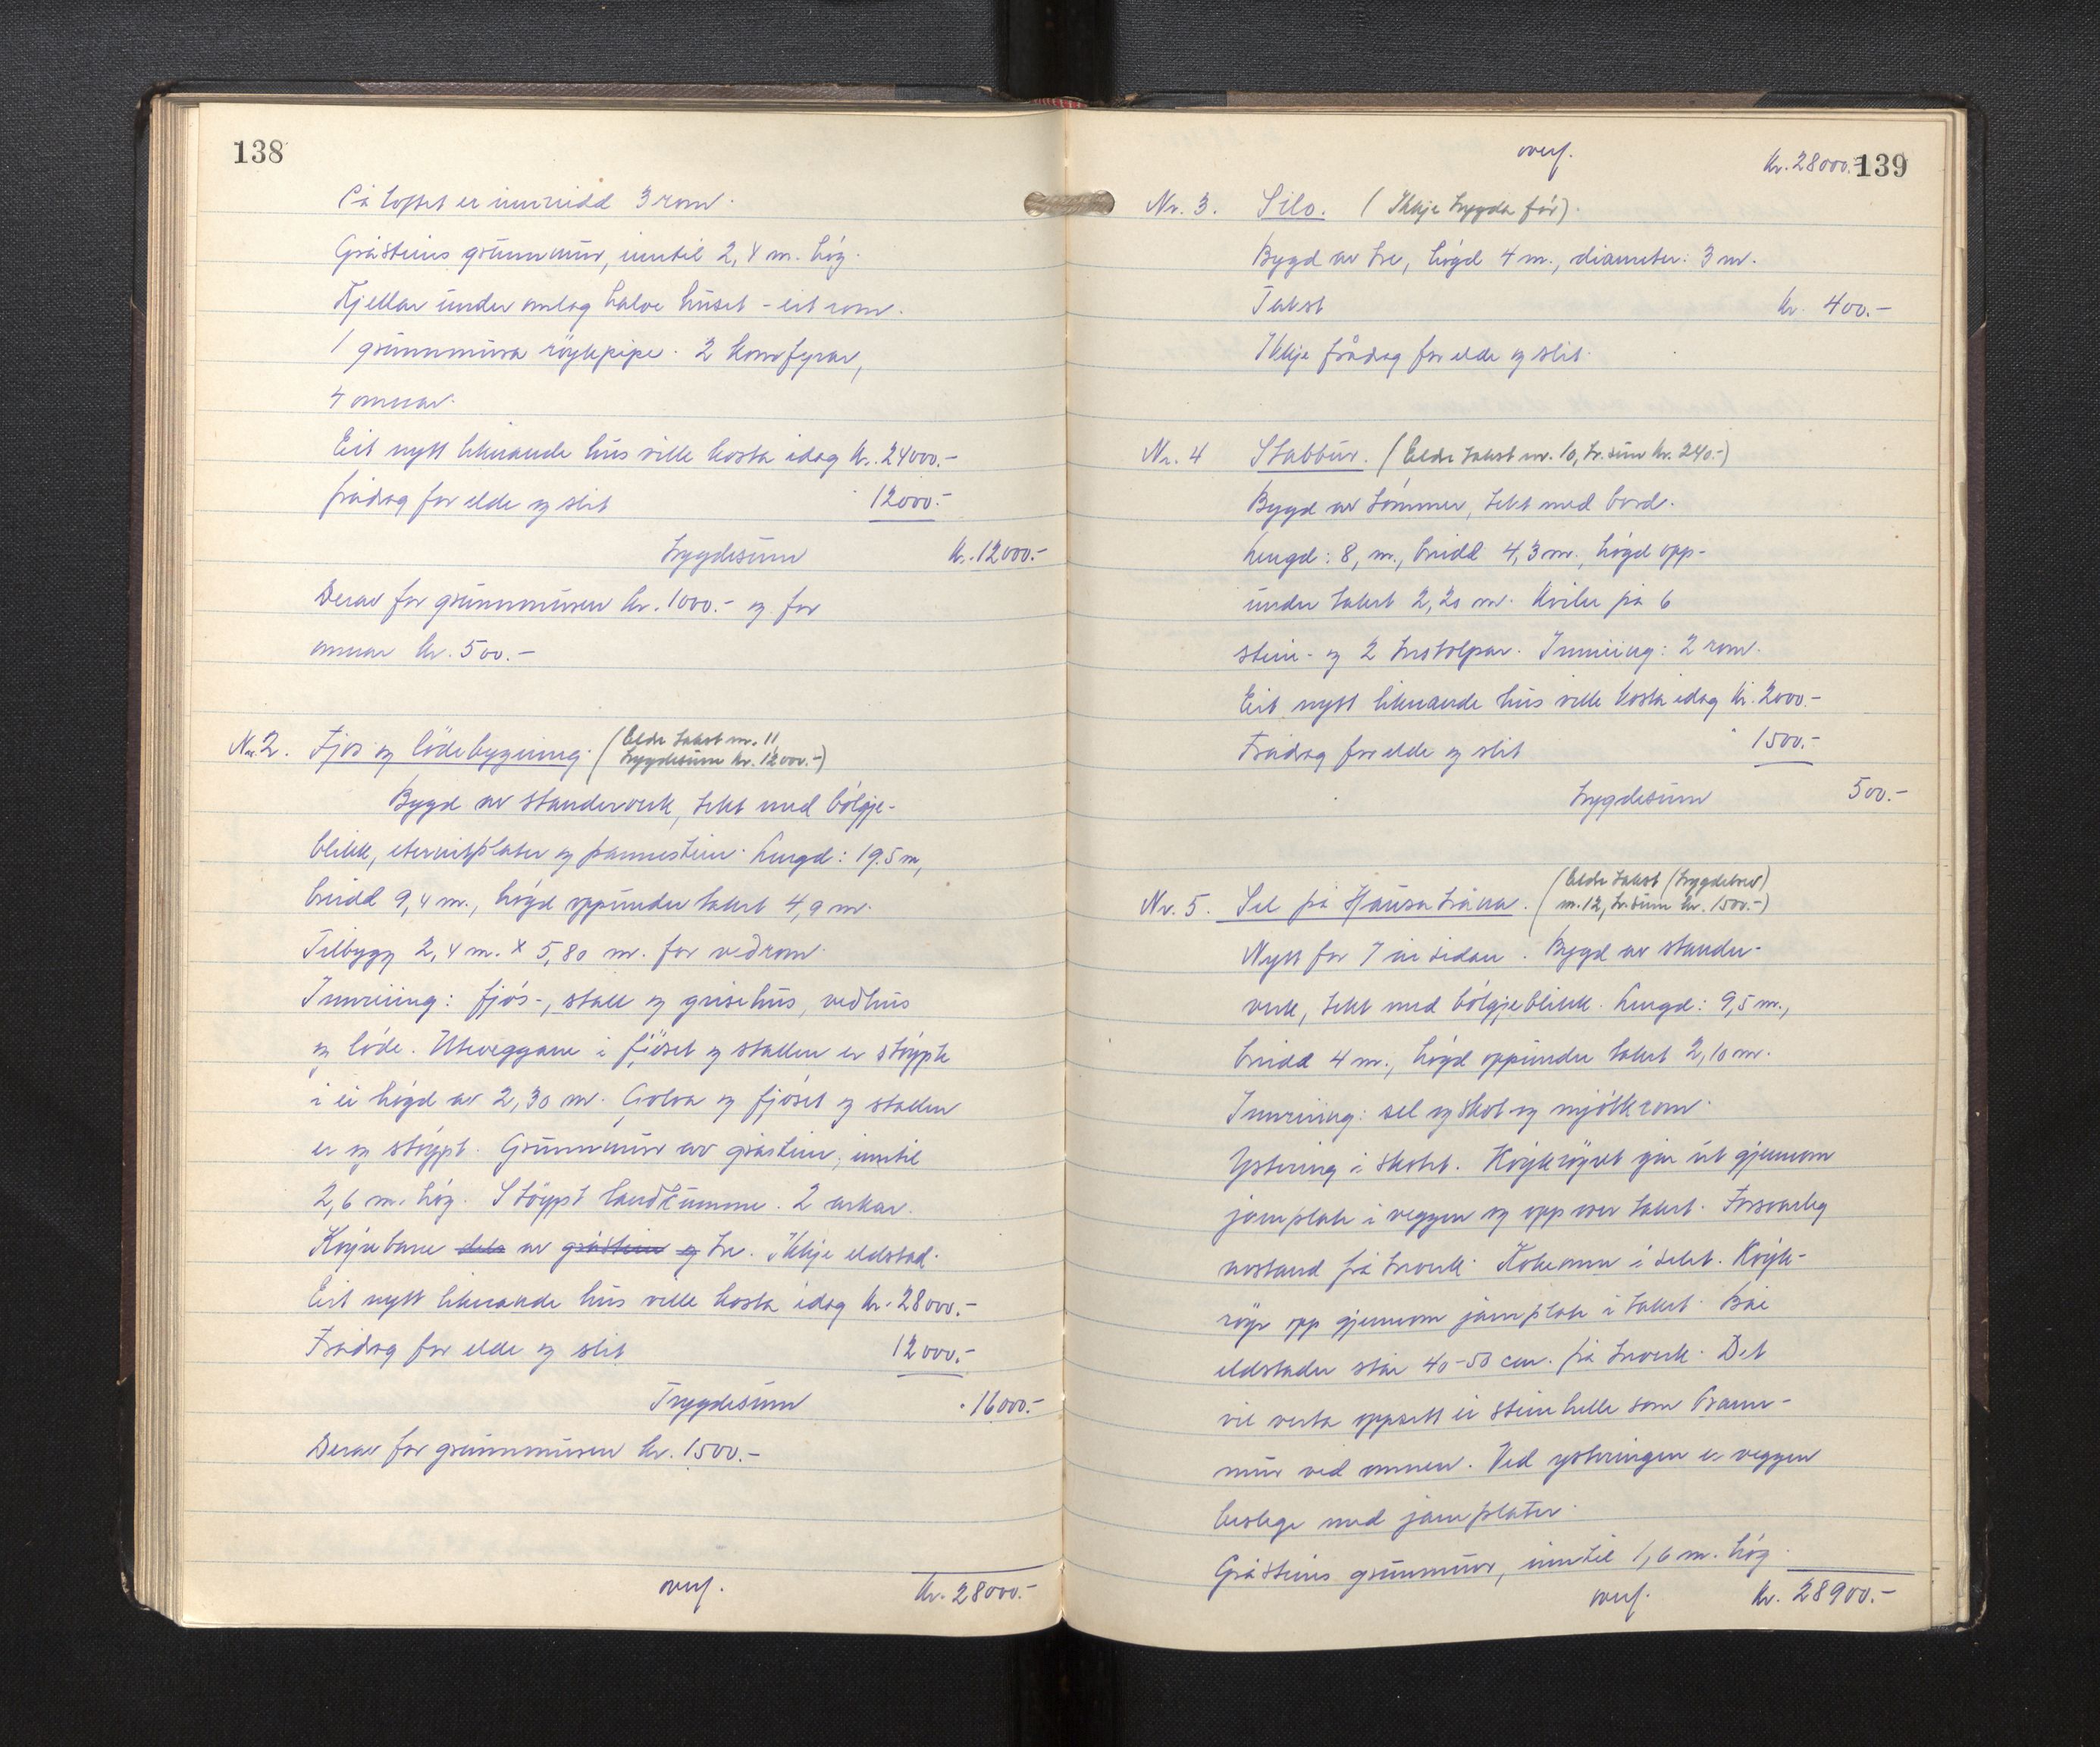 138
På loftet er innreidd 3 rom.
Gråsteins grunnmur, inntil 2,4 m. høg.
Kjellar under omlag halve huset - eit rom.
1 grunnmura røykpipe. 2 komfyrar,
4 omnar.
Eit nytt liknande hus ville kosta idag kr. 24000.-
frådrag for elde og slit 12000.-
trygdesum kr. 12000.-
Derav for grunnmuren kr. 1000.- og for
omnar kr. 500.-
Nr. 2. Fjos og lödebygning. (Eldre takst nr. 11
trygdesum kr. 12000.-)
Bygd av standerverk, tekt med bölgje-
blikk, eternitplater og pannestein. Lengd: 19.5 m,
breidd 9,4 m., høgd oppunder taket 4,9 m.
Tilbygg 2,4 m. x 5,80 m. for vedrom.
Innreiing: fjós-, stall og grisehus, vedhus
og løde. Uteveggane i fjöset og stallen er støypte
i ei høgd av 2,30 m. Golva og fjöset og stallen
er og støypt. Grunnmur av gråstein, inntil
2,6 m. høg. Støypt landkumme. 2 arkar.
Køyrebane dels av gråstein og tre. Ikkje eldstad.
Eit nytt liknande hus ville kosta idag kr. 28000.-
Frådrag for elde og slit 12000.-
Trygdesum 16000.-
Derav for grunnmuren kr. 1500.-
overf. kr. 28000.-
overf. kr. 28000.- 139
Nr. 3. Silo. (Ikkje trygda før).
Bygd av tre, høgd 4 m., diameter: 3 m.
Takst kr. 400.-
Ikkje frådrag for elde og slit.
Nr. 4 Stabbur. (Eldre takst nr. 10, tr.sum kr. 240.-)
Bygd av tømmer, tekt med bord.
Lengd: 8, m., breidd 4,3 m., høgd opp-
under taket 2,20 m. Kviler på 6
stein- og 2 trestolpar. Innreiing: 2 rom.
Eit nytt liknande hus ville kosta idag kr. 2000.-
Frådrag for elde og slit 1500.-
trygdesum 500.-
Nr. 5. Sel på (Eldre takst (trygdebrev)
nr. 12, tr.sum kr. 1500.-)
Nytt for 7 år sidan. Bygd av stander-
verk, tekt med bølgjeblikk. Lengd: 9,5 m.,
breidd 4 m., høgd oppunder taket 2,10 m.
Innreiing: sel og skot og mjölkrom.
Ystering i skotet. Røykrøyret går ut gjennom
jarnplate i veggen og opp over taket. Forsvarleg
avstand frå treverk. Kokeomn i selet. Røyk-
røyr opp gjennom jarnplate i taket. Båe
eldstader står 40-50 cm. frå treverk. Det
vil verta oppsett ei steinhelle som brann-
mur ved omnen. Ved ysteringen er veggen
beslege med jarnplater.
Gråsteins grunnmur, inntil 1,6 m. høg.
overf. kr. 28900.-